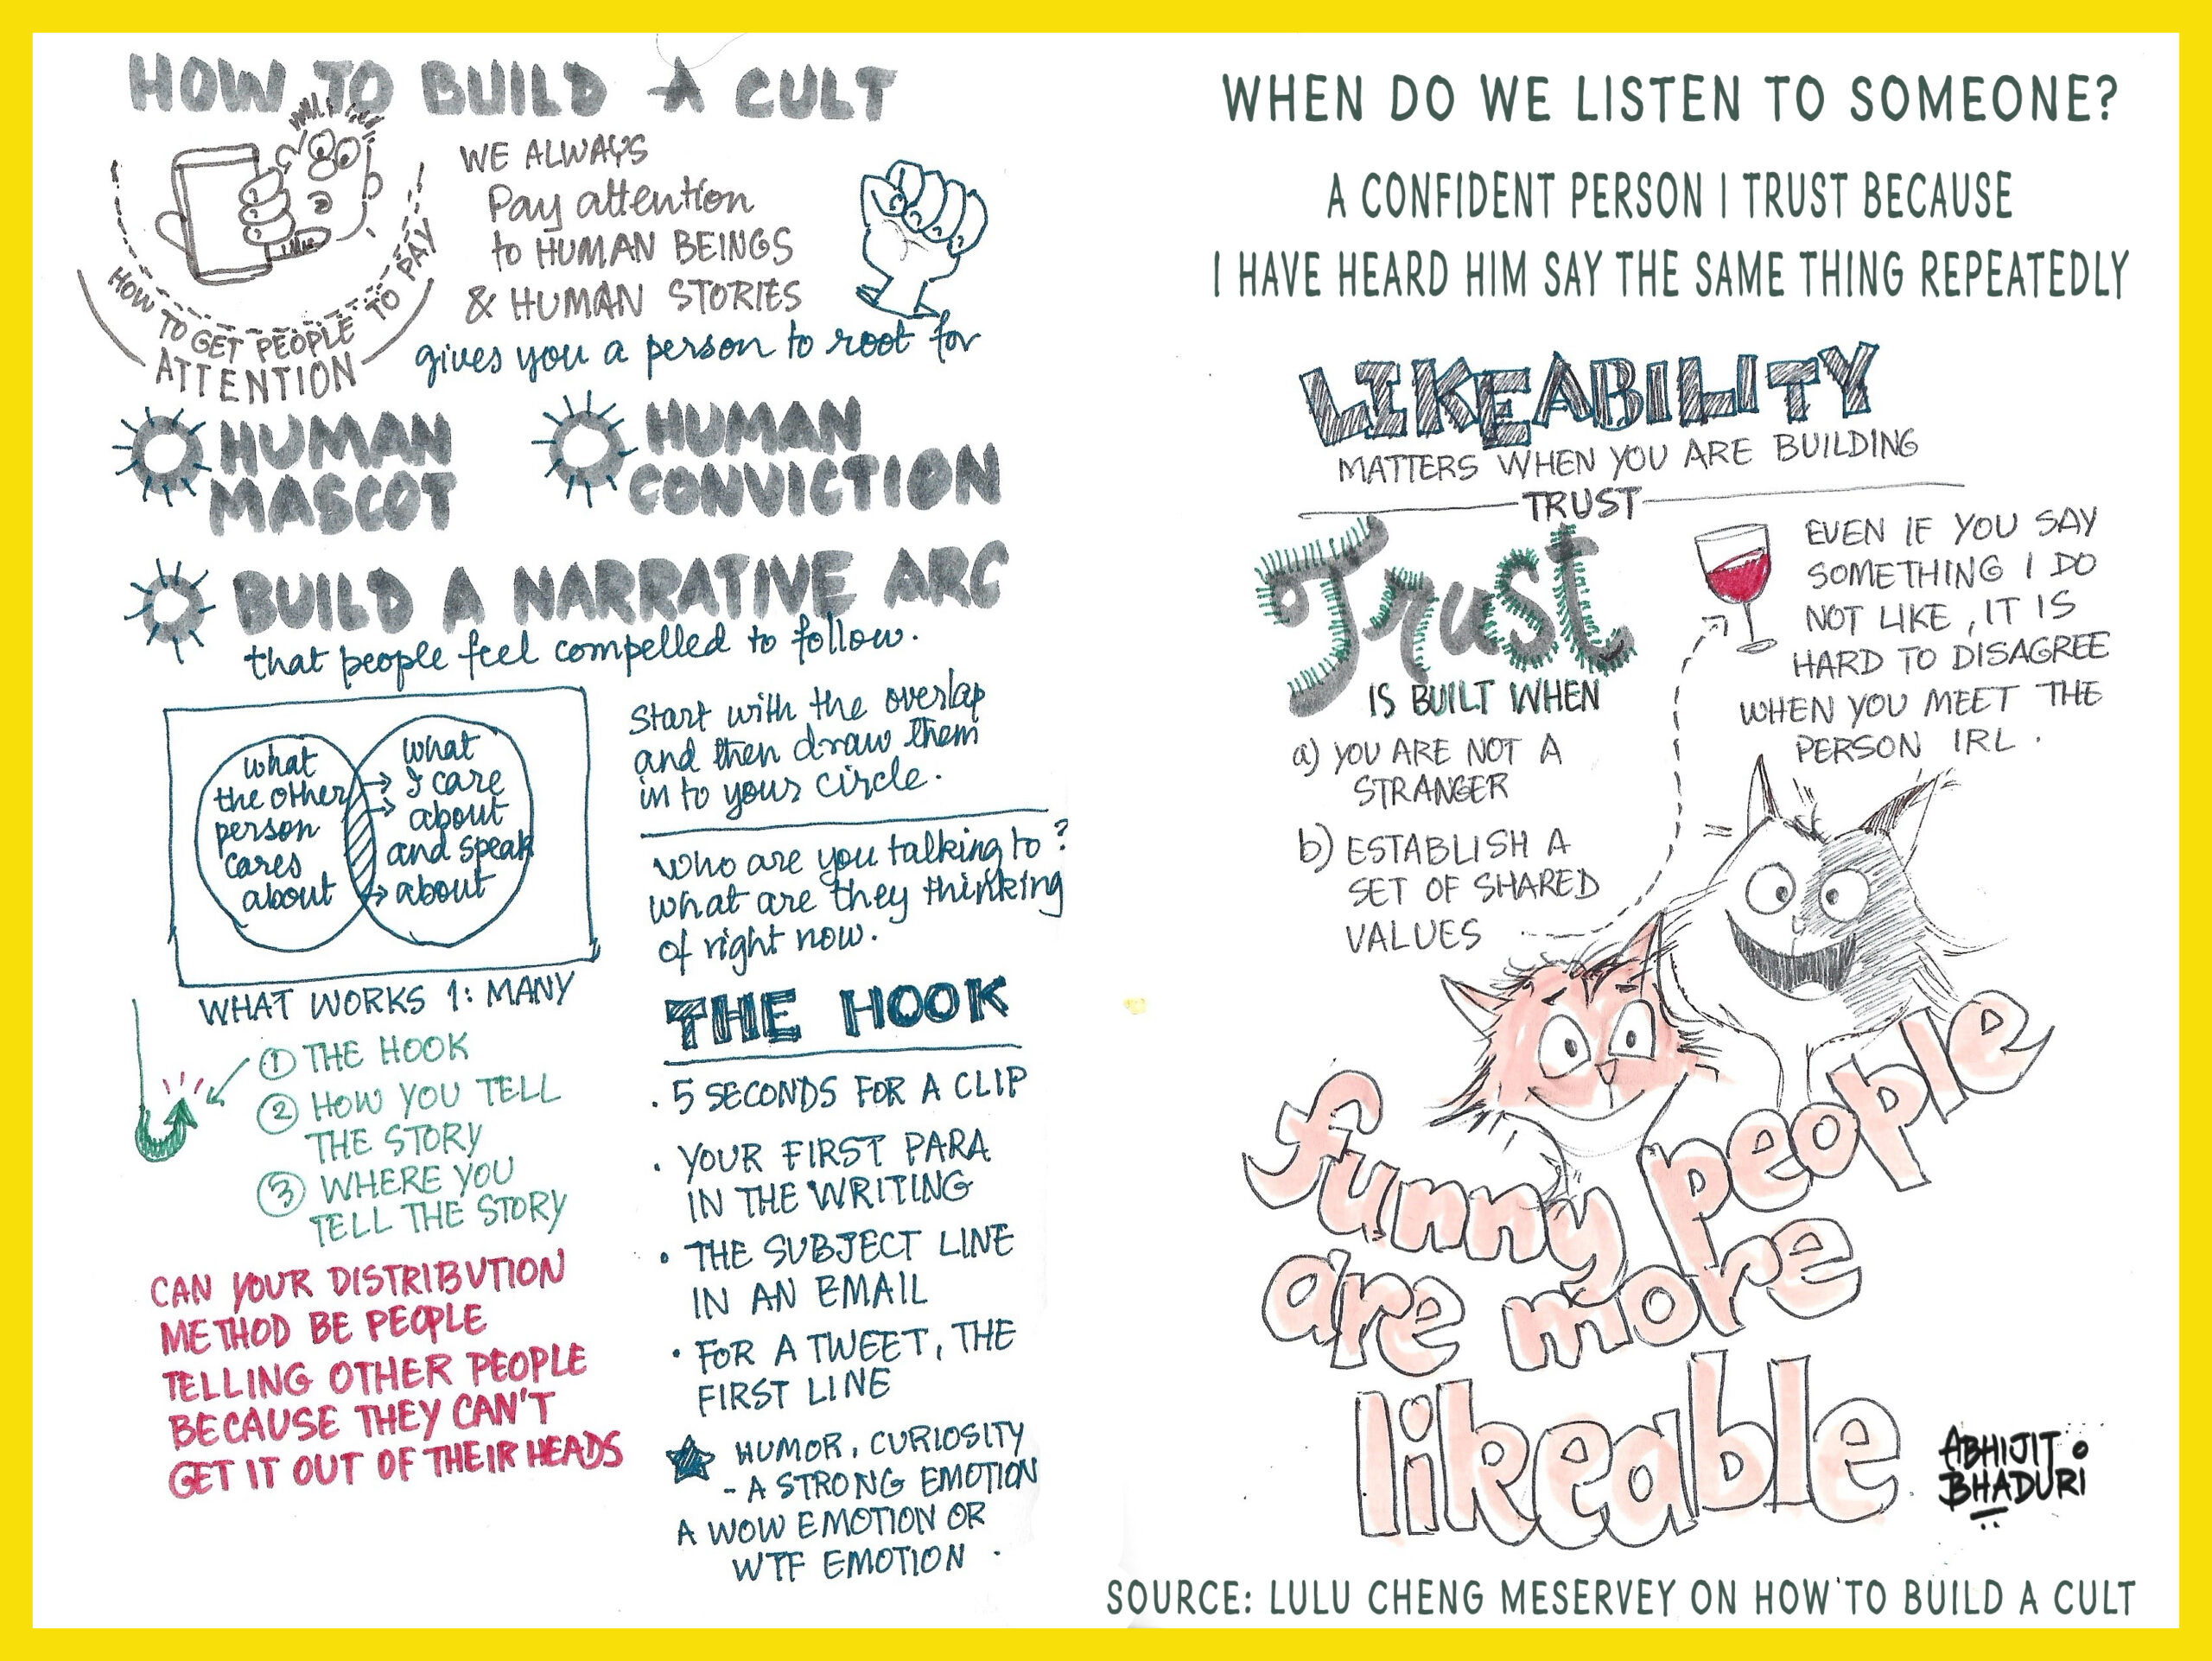 HOW TO BUILD A CULT
HOW TO GET PEOPLE TO PAY
ATTENTION
WE ALWAYS
Pay attention
to HUMAN BEINGS
& HUMAN STORIES
gives you a person to root for
HUMAN
MASCOT
HUMAN
CONVICTION
BUILD A NARRATIVE ARC
that people feel compelled to follow.
what
the other
person
cares
about
what
I care
about
and speak
about
Start with the overlap
and then draw them
in to your circle.
Who are you talking to?
what are they thinking
of right now.
WHAT WORKS 1: MANY
1 THE HOOK
2 HOW YOU TELL
THE STORY
3 WHERE YOU
TELL THE STORY
CAN YOUR DISTRIBUTION
METHOD BE PEOPLE
TELLING OTHER PEOPLE
BECAUSE THEY CAN'T
GET IT OUT OF THEIR HEADS
THE HOOK
. 5 SECONDS FOR A CLIP
. YOUR FIRST PARA
IN THE WRITING
• THE SUBJECT LINE
IN AN EMAIL
• FOR A TWEET, THE
FIRST LINE
HUMOR, CURIOSITY
- A STRONG EMOTION
A WOW EMOTION OR
WTF EMOTION .
WHEN DO WE LISTEN TO SOMEONE?
A CONFIDENT PERSON I TRUST BECAUSE
I HAVE HEARD HIM SAY THE SAME THING REPEATEDLY
LIKEABILITY
MATTERS WHEN YOU ARE BUILDING
TRUST
Trust
IS BUILT WHEN
a) YOU ARE NOT A
STRANGER
b) ESTABLISH A
SET OF SHARED
VALUES
EVEN IF YOU SAY
SOMETHING I DO
NOT LIKE, IT IS
HARD TO DISAGREE
WHEN YOU MEET THE
PERSON IRL.
funny people
are more
likeable
ABHIJIT
BHADURI
SOURCE: LULU CHENG MESERVEY ON HOW TO BUILD A CULT